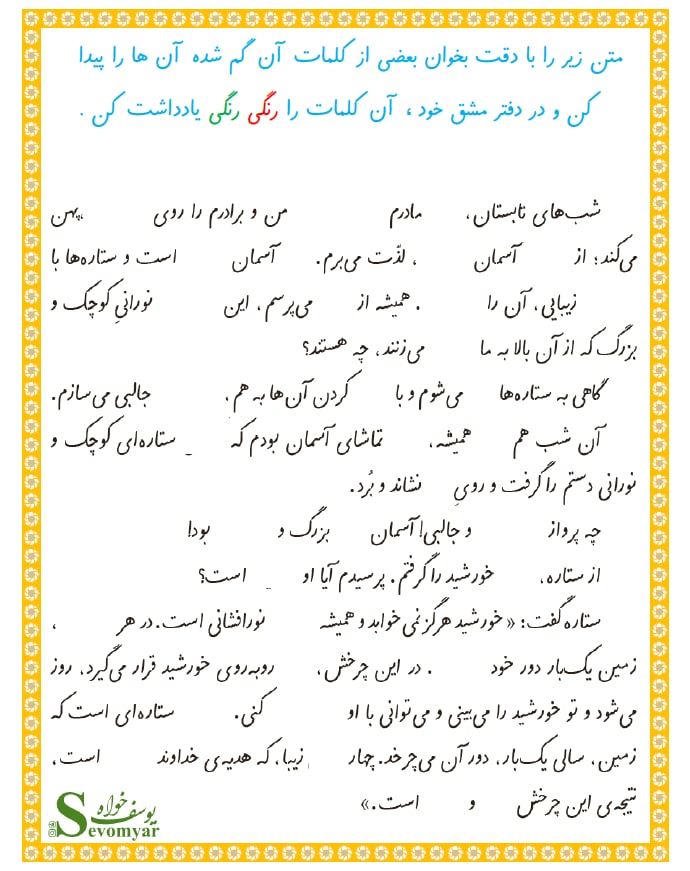 متن زیر را با دقت بخوان بعضی از کلمات آن گم شده آن ها را پیدا
کن و در دفتر مشق خود ، آن کلمات را رنگی رنگی یادداشت کن .
شب‌های تابستان، مادرم من و برادرم را روی ،پهن
می‌کند؛ از آسمان ، لذّت می‌برم. آسمان است و ستاره‌ها با
زیبایی، آن را . همیشه از می‌پرسم، این نورانیِ کوچک و
بزرگ که از آن بالا به ما می‌زنند، چه هستند؟
گاهی به ستاره‌ها می‌شوم و با کردن آن‌ها به هم، جالبی می‌سازم.
آن شب هم همیشه، تماشای آسمان بودم که ستاره‌ای کوچک و
نورانی دستم را گرفت و رویِ نشاند و بُرد.
چه پرواز و جالبی! آسمان بزرگ و بود!
از ستاره، خورشید را گرفتم. پرسیدم آیا او است؟
ستاره گفت: «خورشید هرگز نمی‌خوابد و همیشه نورافشانی است. در هر ،
زمین یک‌بار دور خود . در این چرخش، روبه‌روی خورشید قرار می‌گیرد، روز
می‌شود و تو خورشید را می‌بینی و می‌توانی با او کنی. ستاره‌ای است که
زمین، سالی یک‌بار، دور آن می‌چرخد. چهار زیبا، که هدیه‌ی خداوند است،
نتیجه‌ی این چرخش و است.»
یوسف خواه
Sevomyar